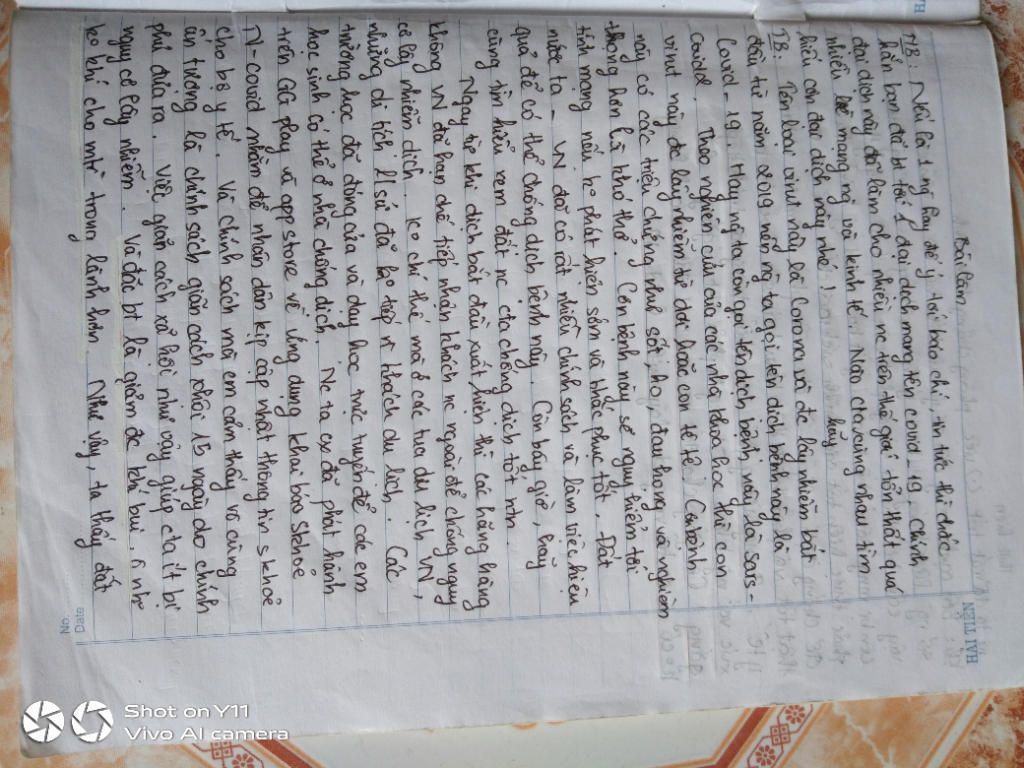 HẢI TIẾN
Date
No
Bài làm
MB: Nếu là 1 ng hay để ý tới báo chí, tin tức thì chắc
hẳn bạn đã bt tới 1 đại dịch mang tên covid-19. Chính
đại dịch này đã làm cho nhiều nc trên thế giới tổn thất quá
nhiều về mạng ng và kinh tế. Nào cta cùng nhau tìm
hiểu con đại dịch này nhé!
TB: Tên loại virut này là Corona và đc lây nhiễm bắt
đầu từ năm 2019 nên ng ta gọi tên dịch bệnh này là
Covid-19. Hay ng ta còn gọi tên dịch bệnh này là sars-
Covid. Theo nghiên cứu của các nhà khoa học thì con
virut này đc lây nhiễm từ dơi hoặc con tê tê. Căn bệnh
này có các triệu chứng như sốt, ho, đau họng và nghiêm
trọng hơn là khó thở. Căn bệnh này sẽ nguy hiểm tới
tính mạng nếu ko phát hiện sớm và khắc phục tốt. Đất
nước ta - VN đã có rất nhiều chính sách và làm việc hiệu
quả để có thể chống dịch bệnh này. Còn bây giờ, hãy
cùng tìm hiểu xem đất nc cta chống dịch tốt ntn.
Ngay từ khi dịch bắt đầu xuất hiện thì các hãng hàng
không VN đã hạn chế tiếp nhận khách nc ngoài để chống nguy
cơ lây nhiễm dịch. Ko chỉ thế mà ở các tua du lịch VN,
những di tích l/sử đã ko tiếp n~ khách du lịch. Các
trường học đã đóng cửa và dạy học trực tuyến để các em
học sinh có thể ở nhà chống dịch. Nc ta cx đã phát hành
trên GG Play và app store về ứng dụng khai báo skhoẻ
N-covid nhằm để nhân dân kịp cập nhật thông tin skhoẻ
cho bộ y tế. Và chính sách mà em cảm thấy vô cùng
ấn tượng là chính sách giãn cách xhội 15 ngày do chính
phủ đưa ra. Việc giãn cách xã hội như vậy giúp cta ít bị
nguy cơ lây nhiễm. Và đặc bt là giảm đc khí bụi, ô nh
ko khí cho mtr trong lành hơn. Như vậy, ta thấy đất
Shot on Y11
Vivo AI camera